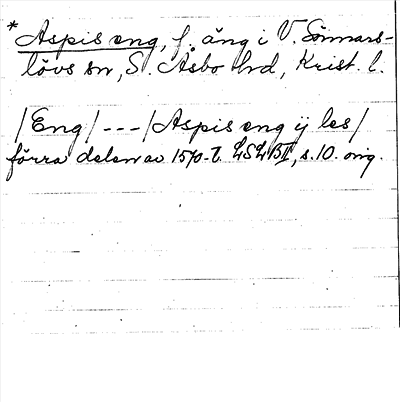 *Aspis eng, f. äng i V. Sönnars-
lövs sn, S. Åsbo hrd, Krist. l.
/Eng/ --- /Aspis eng ij les/
förra delen av 1570-t. LSLBII, s. 10. orig.